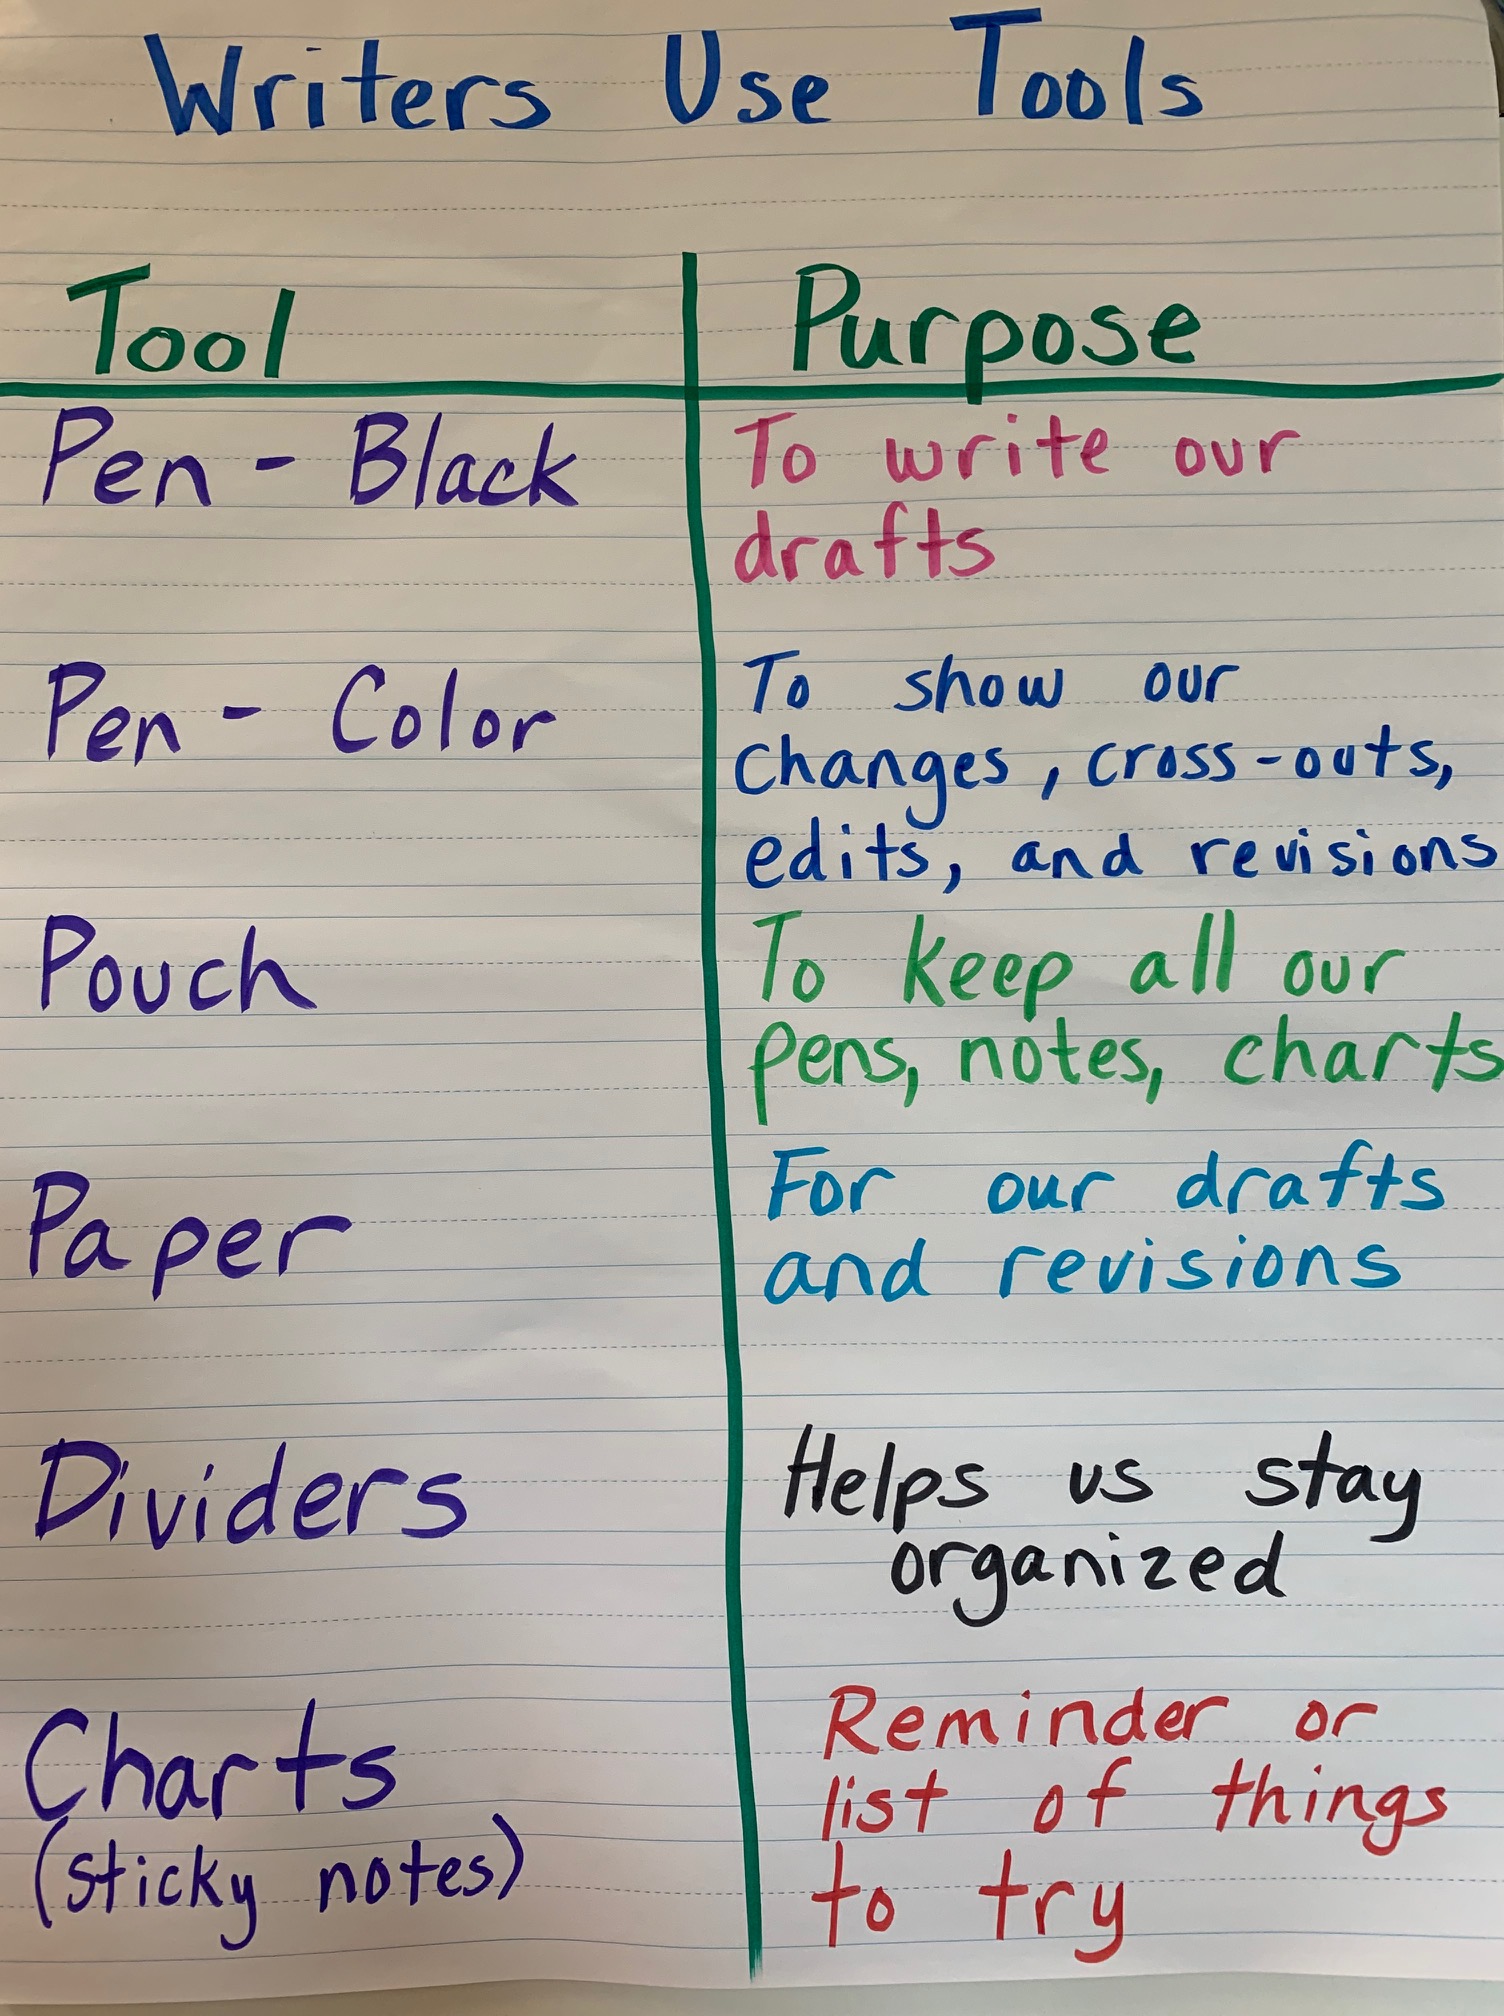 Writers Use Tools
Tool
Purpose
Pen - Black
To write our
drafts
Pen - Color
To show our
changes, cross-outs,
edits, and revisions
Pouch
To keep all our
pens, notes, charts
Paper
For our drafts
and revisions
Dividers
Helps us stay
organized
Charts
(sticky notes)
Reminder or
list of things
to try